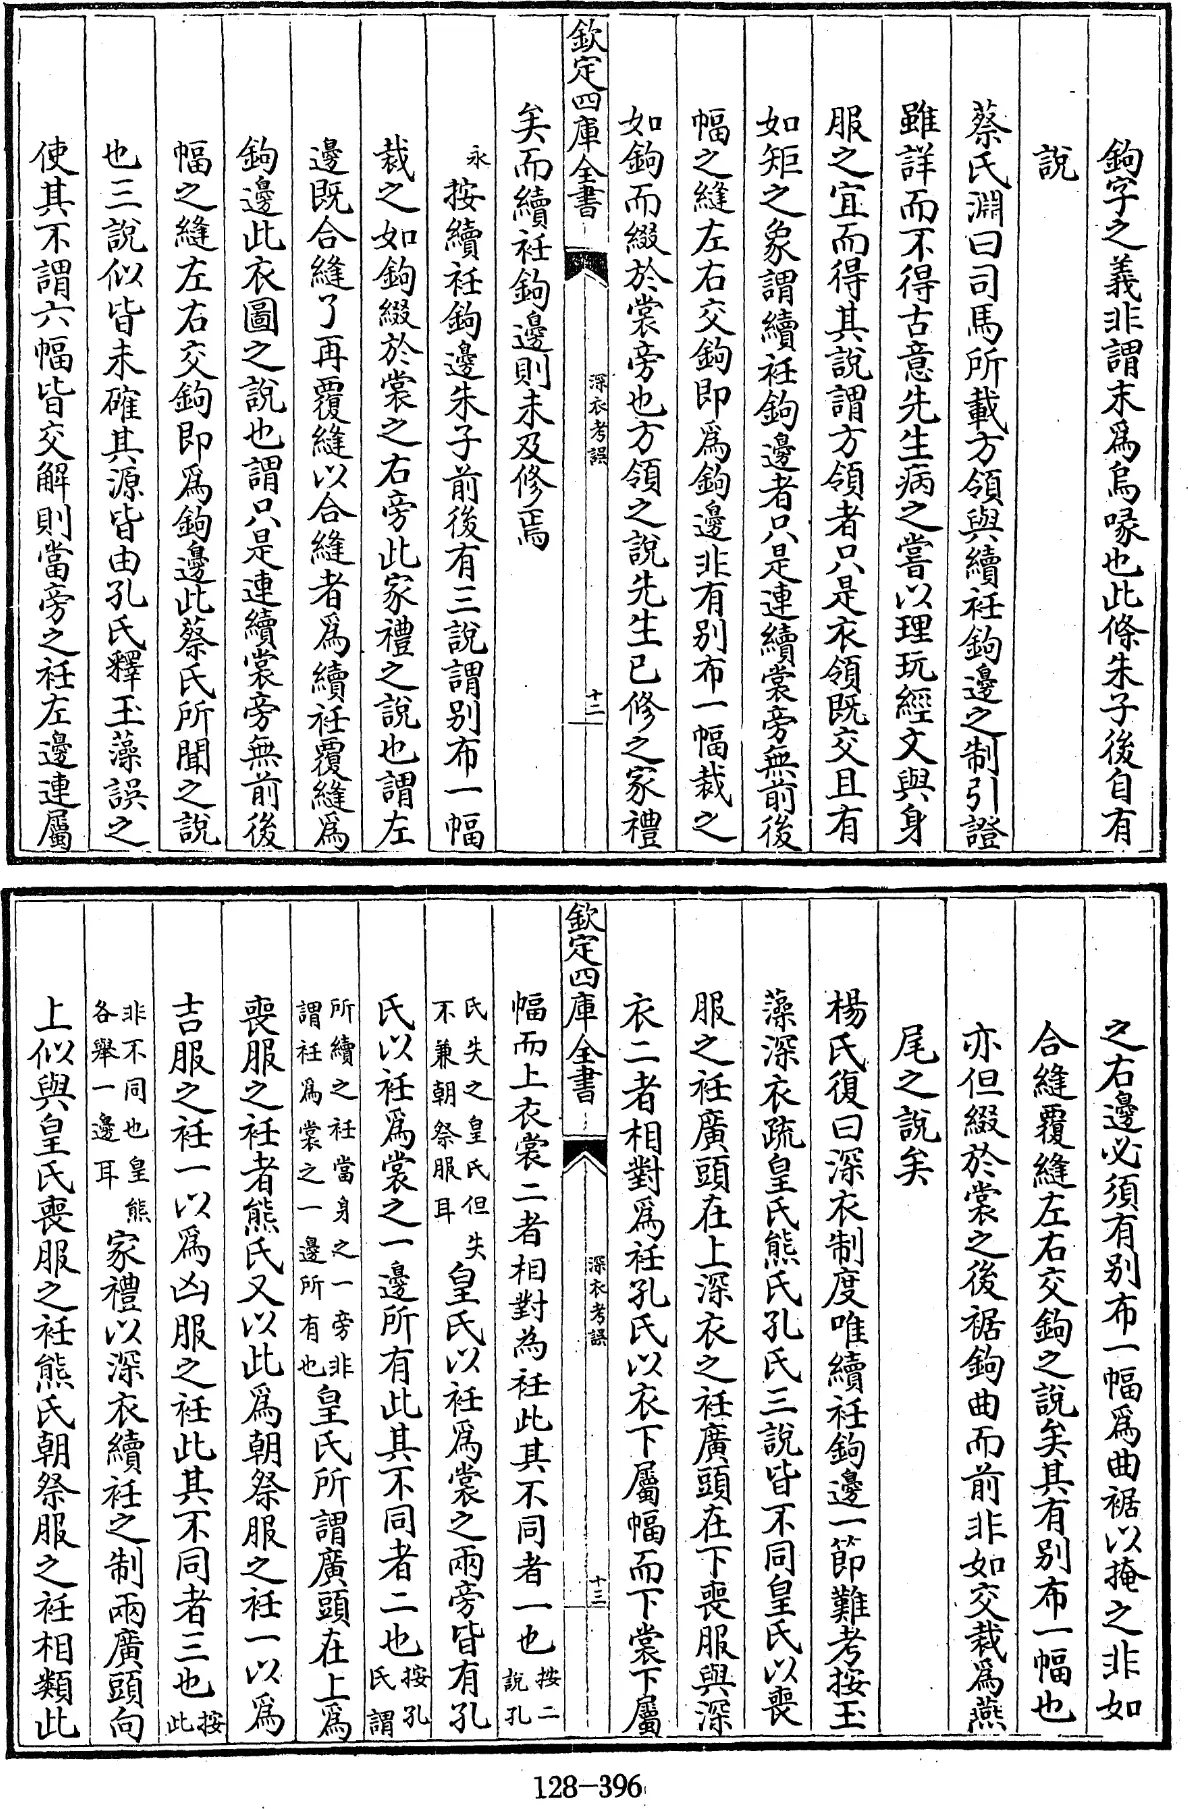 鉤字之義非謂末爲烏喙也此條朱子後自有
說
蔡氏淵曰司馬所載方領與續衽鉤邊之制引證
雖詳而不得古意先生病之嘗以理玩經文與身
服之宜而得其說謂方領者只是衣領既交且有
如矩之象謂續衽鉤邊者只是連續裳旁無前後
幅之縫左右交鉤即爲鉤邊非有別布一幅裁之
如鉤而綴於裳旁也方領之說先生已修之家禮
欽定四庫全書
深衣考誤
十二
矣而續衽鉤邊則未及修焉
永按續衽鉤邊朱子前後有三說謂別布一幅
裁之如鉤綴於裳之右旁此家禮之說也謂左
邊既合縫了再覆縫以合縫者爲續衽覆縫爲
鉤邊此衣圖之說也謂只是連續裳旁無前後
幅之縫左右交鉤即爲鉤邊此蔡氏所聞之說
也三說似皆未確其源皆由孔氏釋玉藻誤之
使其不謂六幅皆交解則當旁之衽左邊連屬
之右邊必須有別布一幅爲曲裾以掩之非如
合縫覆縫左右交鉤之說矣其有別布一幅也
亦但綴於裳之後裾鉤曲而前非如交裁爲燕
尾之說矣
楊氏復曰深衣制度唯續衽鉤邊一節難考按玉
藻深衣疏皇氏熊氏孔氏三說皆不同皇氏以喪
服之衽廣頭在上深衣之衽廣頭在下喪服與深
衣二者相對爲衽孔氏以衣下屬幅而下裳下屬
欽定四庫全書
深衣考誤
十三
幅而上衣裳二者相對為衽此其不同者一也按二說孔
氏失之皇氏但失不兼朝祭服耳皇氏以衽爲裳之兩旁皆有孔
氏以衽爲裳之一邊所有此其不同者二也按孔氏謂
所續之衽當身之一旁非謂衽爲裳之一邊所有也皇氏所謂廣頭在上爲
喪服之衽者熊氏又以此爲朝祭服之衽一以爲
吉服之衽一以爲凶服之衽此其不同者三也按此
非不同也皇熊各舉一邊耳家禮以深衣續衽之制兩廣頭向
上似與皇氏喪服之衽熊氏朝祭服之衽相類此
128-396